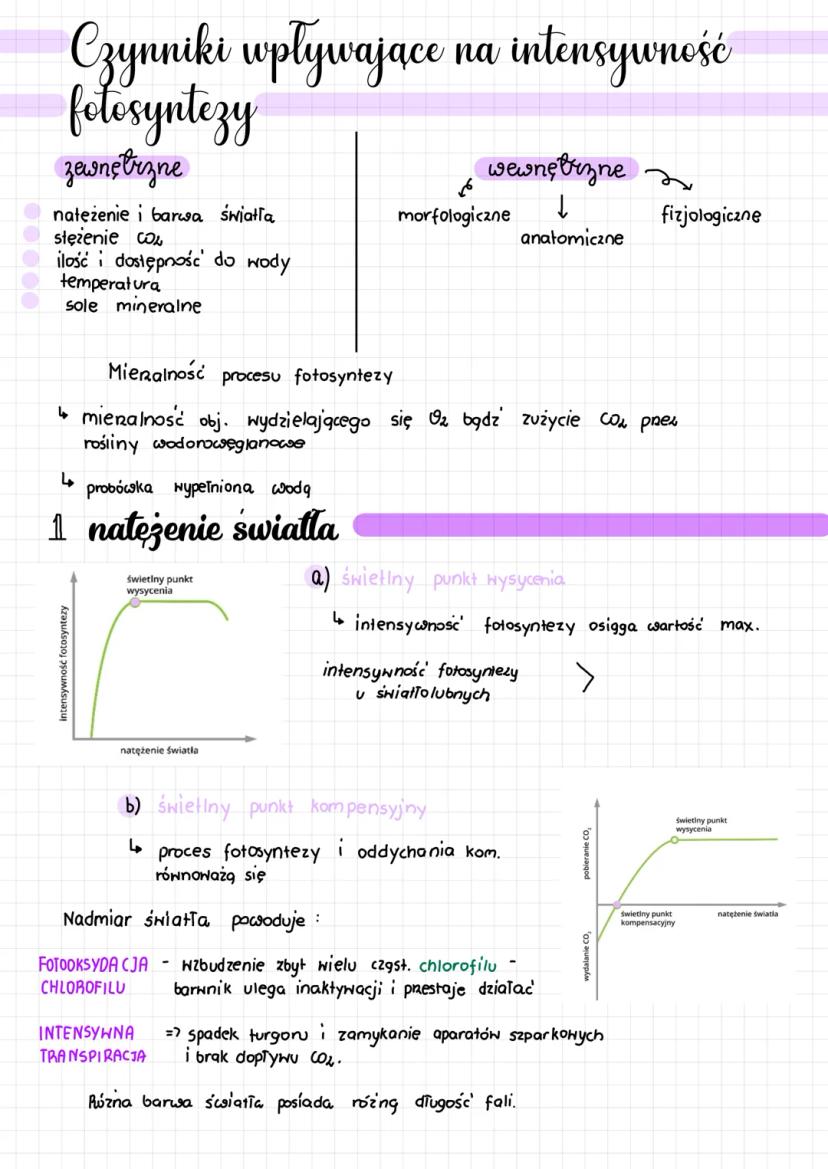 Czynniki wpływające na intensywność
fotosyntezy
zewnętrzne
natężenie i barwa światła
stężenie CO2
ilość i dostępność do wody
temperatura
sole mineralne
wewnętrzne
morfologiczne
anatomiczne
fizjologiczne
Mierzalność procesu fotosyntezy
↳ mierzalność obj. wydzielającego się O2 bądź zużycie CO2 przez
rośliny wodorowęglanowe
↳ probówka wypełniona wodą
1 natężenie światła
świetlny punkt
wysycenia
intensywność fotosyntezy
natężenie światła
a) świetlny punkt wysycenia
↳ intensywność fotosyntezy osiąga wartość max.
intensywność fotosyntezy >
u światłolubnych
b) świetlny punkt kompensyjny
↳ proces fotosyntezy i oddychania kom.
równoważą się
świetlny punkt
wysycenia
pobieranie CO2
świetlny punkt
kompensacyjny
natężenie światła
wydalanie CO2
Nadmiar światła powoduje :
FOTOOKSYDACJA - wzbudzenie zbyt wielu cząst. chlorofilu -
CHLOROFILU barwnik ulega inaktywacji i przestaje działać
INTENSYWNA => spadek turgoru i zamykanie aparatów szparkowych
TRANSPIRACJA i brak dopływu CO2.
Różna barwa światła posiada różną długość fali.